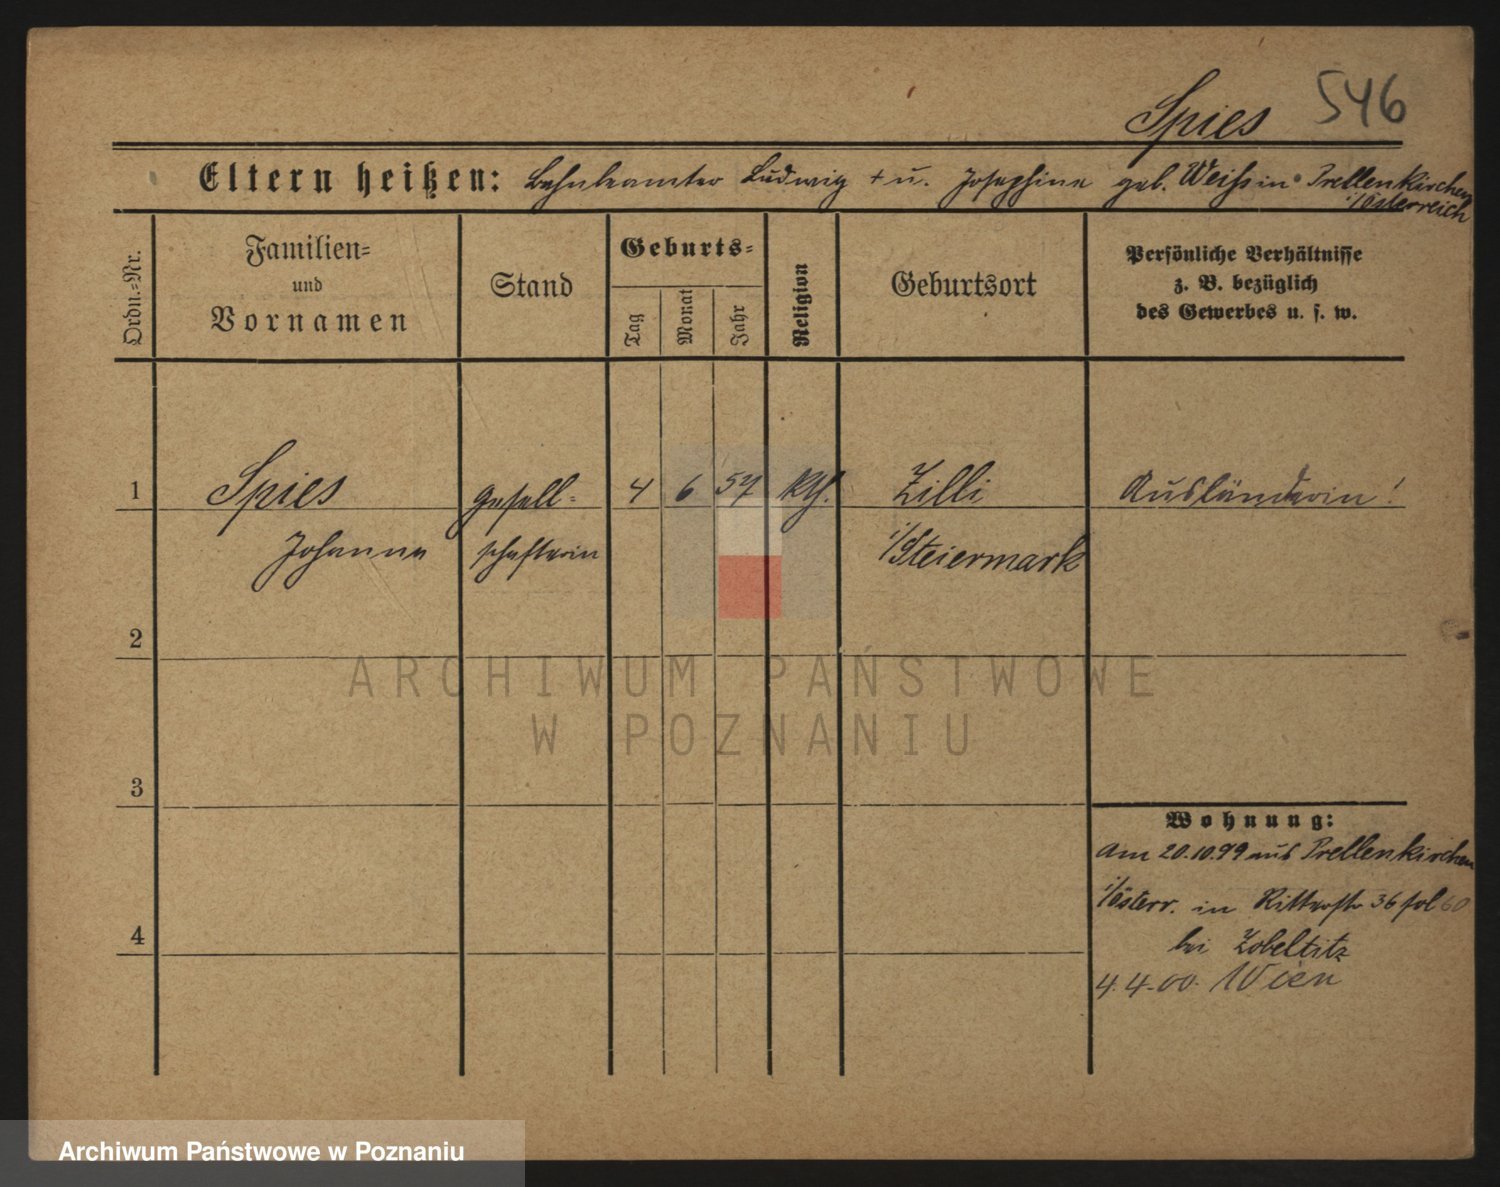 Spies 546
Eltern heißen: Bahnbeamter Ludwig + u. Josephine geb. Weiss in Prellenkirchen
i/Österreich
Ordn.-Nr.
Familien-
und
Vornamen
Stand
Geburts-
Tag
Monat
Jahr
Religion
Geburtsort
Persönliche Verhältnisse
z. B. bezüglich
des Gewerbes u. s. w.
1 Spies Gesell- 4 6 57 kth. Zilli Ausländerin!
Johanna schafterin i/Steiermark
2
ARCHIWUM PAŃSTWOWE
W POZNANIU
3
Wohnung:
Am 20.10.99 aus Prellenkirchen
i/Österr. in Ritterstr 36 fol 60
4
bei Zobeltitz
4.4.00. Wien
Archiwum Państwowe w Poznaniu